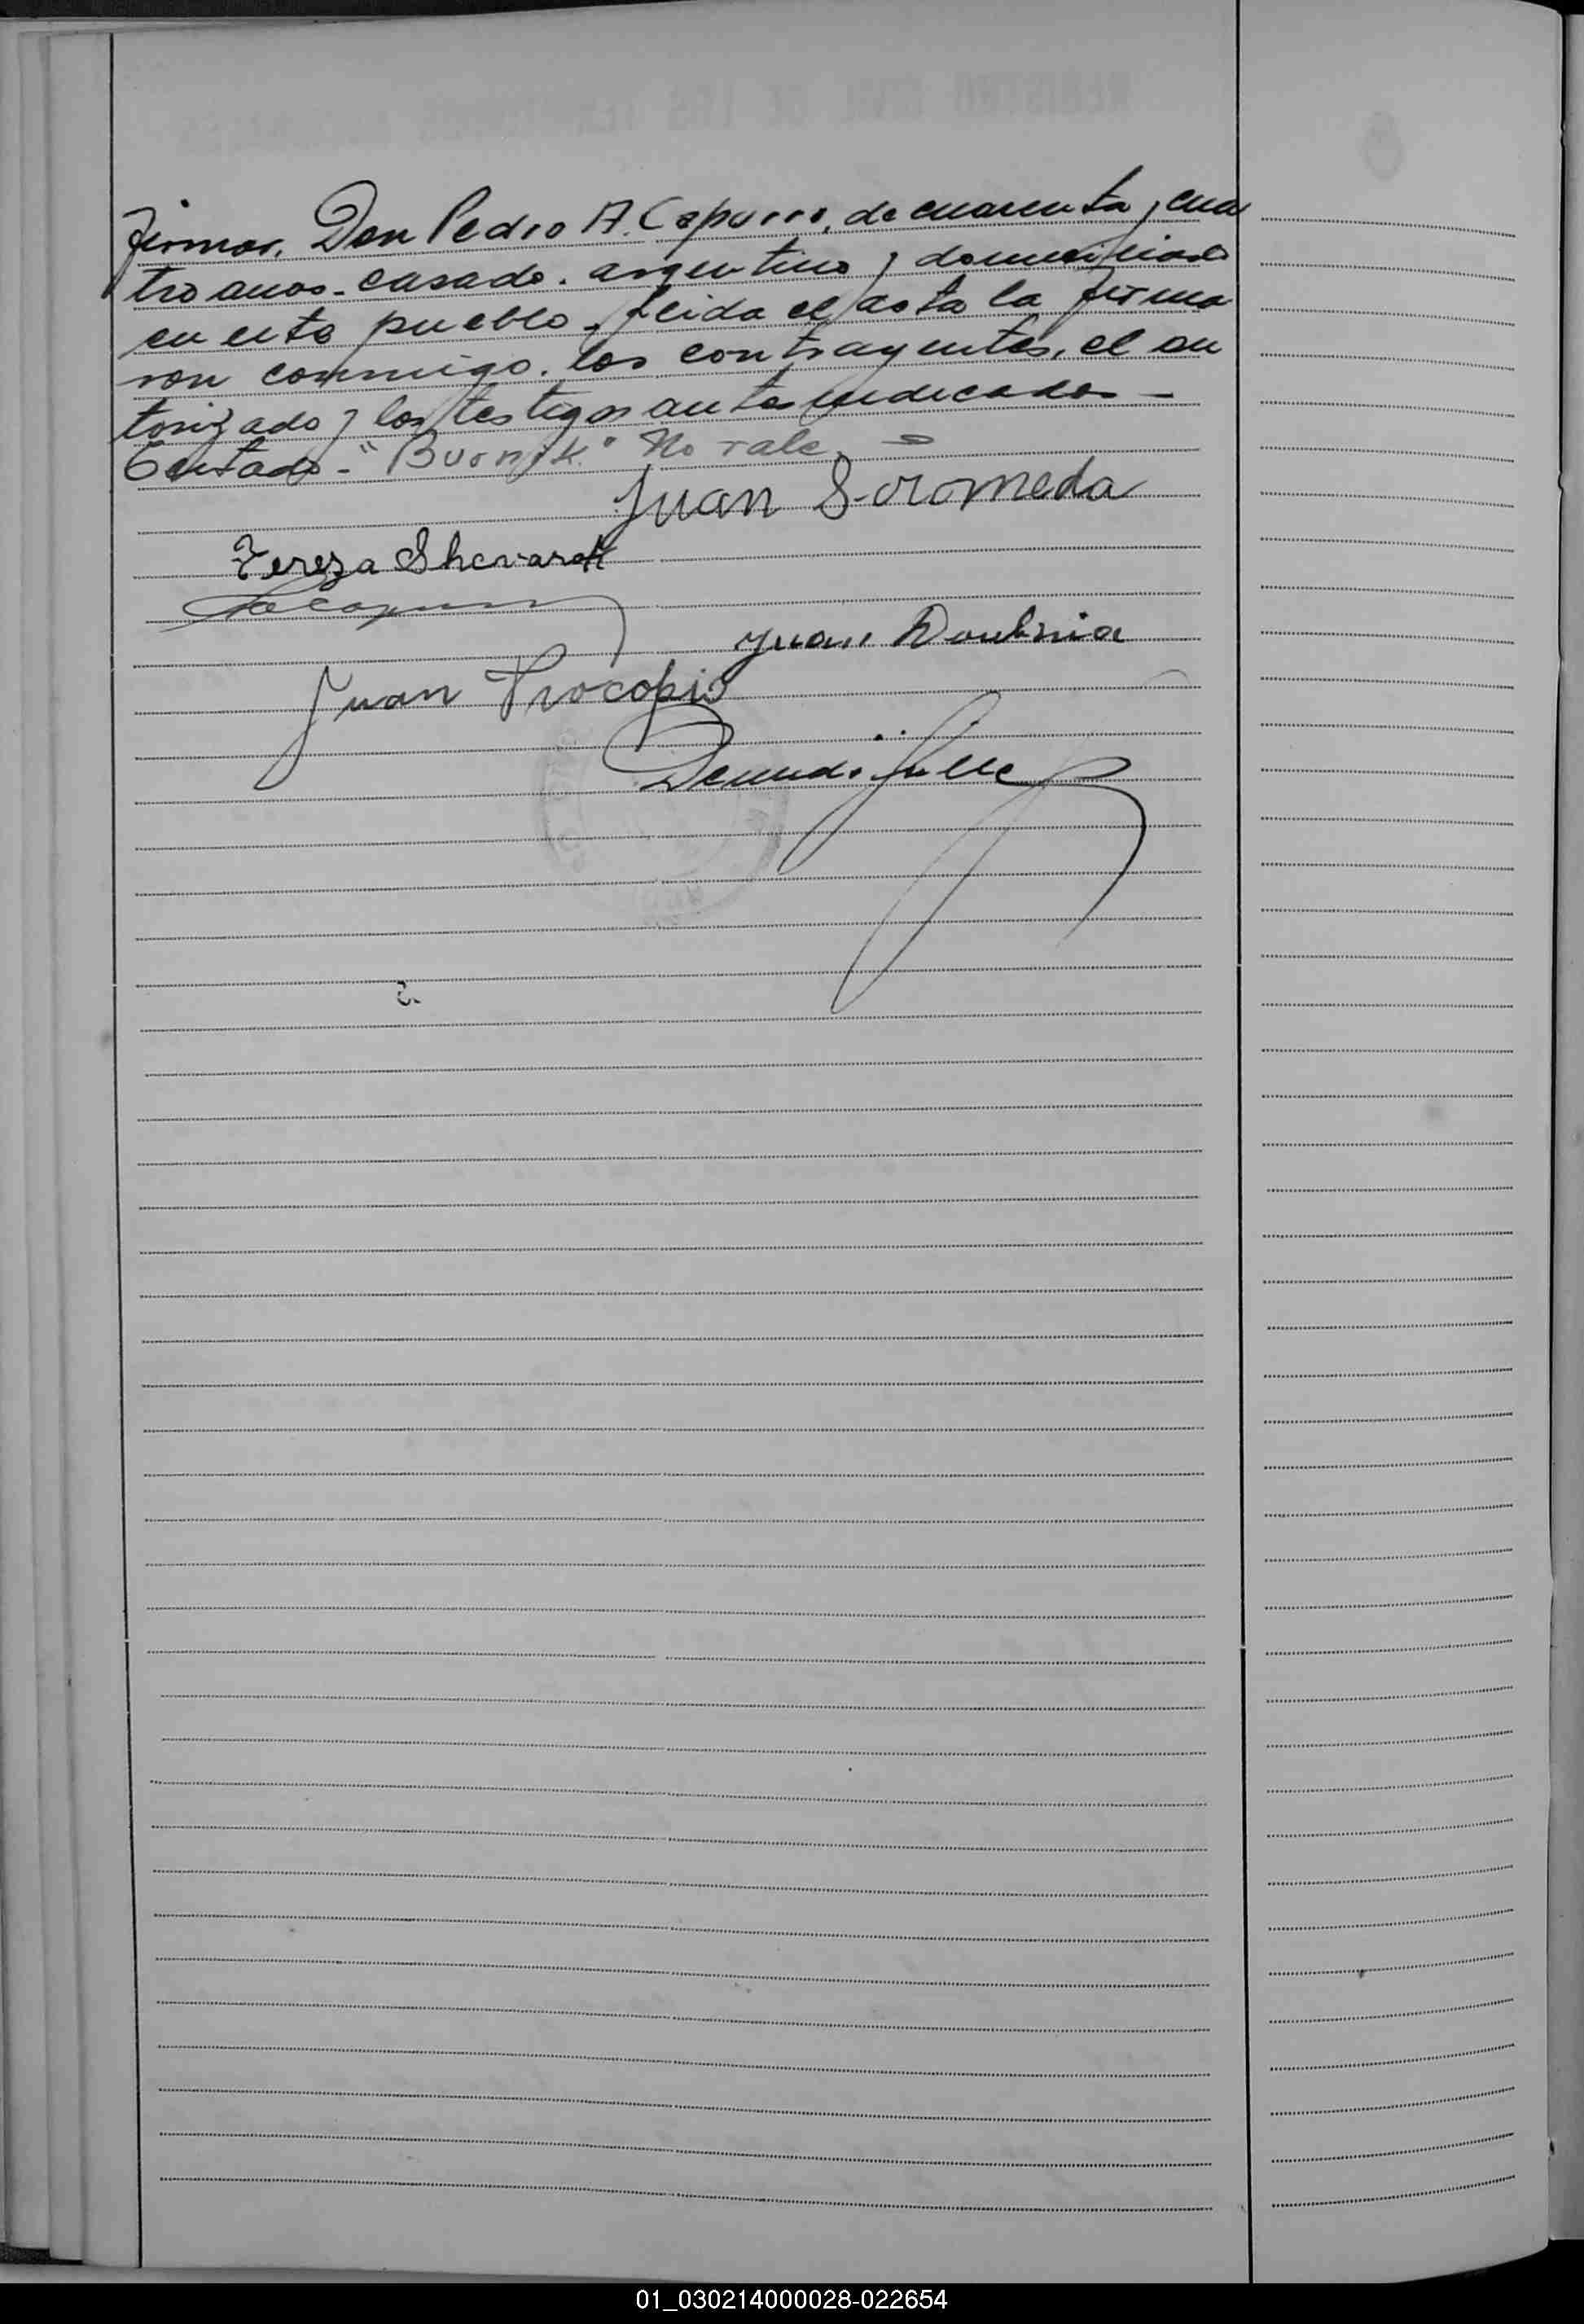 firmar. Don Pedro A. Capurro, de cuarenta y cua
tro años. casado. argentino y domiciliado
en este pueblo. Leida el acta la firma
ron conmigo. los contrayentes, el au
torizado y los testigos antes indicados —
Testado - "Buonik" No vale
Juan Soromeda
Tereza Shevarok
Juan Doubnia
Juan Procopio
01_030214000028-022654